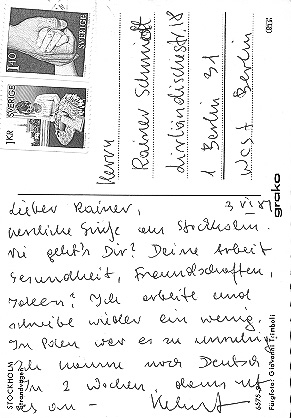 SVERIGE 1.10
SVERIGE 1 KR
Herrn
Rainer Schmidt
1 Berlin 31
West Berlin
grako
3 VI 81
Lieber Rainer,
herzliche Grüße aus Stockholm.
Wie geht's Dir? Deine Arbeit
Gesundheit, Freundschaften,
Ideen? Ich arbeite und
schreibe wieder ein wenig.
In Polen war es zu unruhig
Ich nun noch Deutsch
In 2 Wochen, dann ruf
es an –
STOCKHOLM
Strandvägen
Färgfoto: Giovanni Trimboli